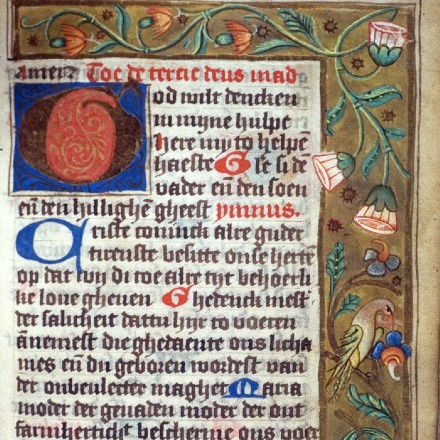 amen Toe de tercie deus in ad
God wilt dencken
in myne hulpe
here my to helpen
haeste Gle si de
vader en den soen
en den hillighen gheest ymnus.
Criste coninck alre guder
tirenste besitte onse herten
op dat wi di toe alre tyt behoerli
ke loue gheuen Ghedenck mest
der salicheit dattu hyr to voeren
annemest die ghedaente ons licha
mes en du geboren wordest van
der onbeulecter maghet Maria
moder der genaden moder der ont
farmherticht bescherme ons voer